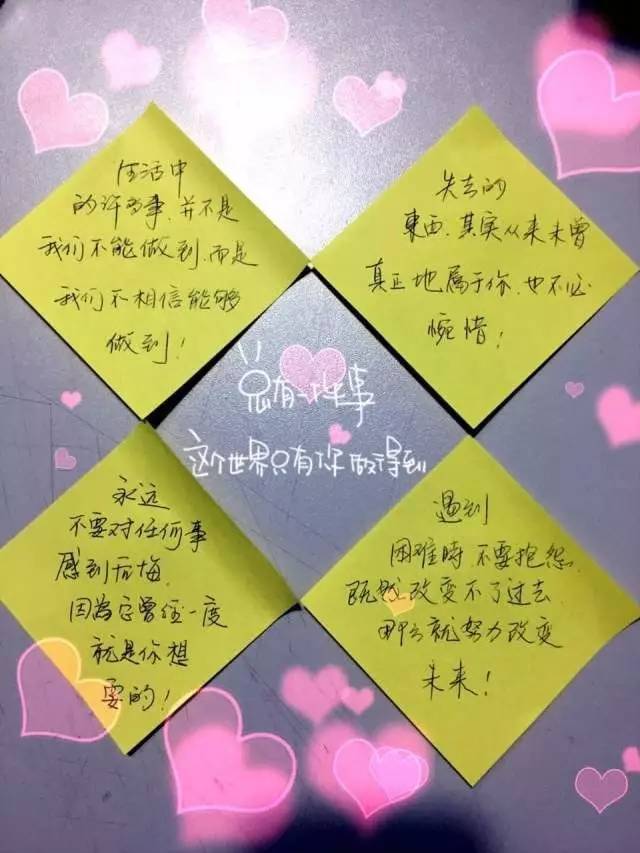 生活中
的许多事,并不是
我们不能做到,而是
我们不相信能够
做到!
失去的
東西,其实从来未曾
真正地属于你,也不必
惋惜!
总有一件事
这个世界只有你做得到
永远
不要对任何事
感到后悔,
因為它曾经一度
就是你想
要的!
遇到
困难時,不要抱怨,
既然改变不了过去,
那么就努力改变
未来!